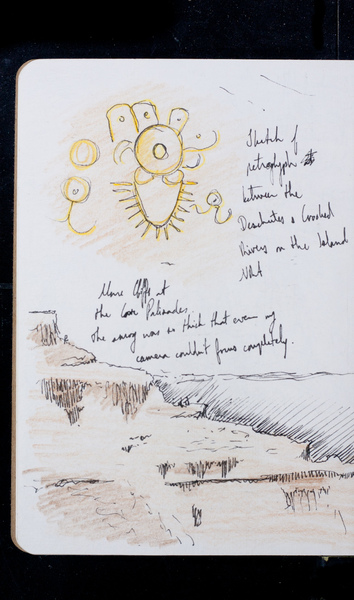 Sketch of
petroglyph
between the
Deschutes & Crooked
Rivers on the Island
NRA
More Cliffs at
the Cove Palisades.
the smog was so thick that even my
camera couldn't focus completely.